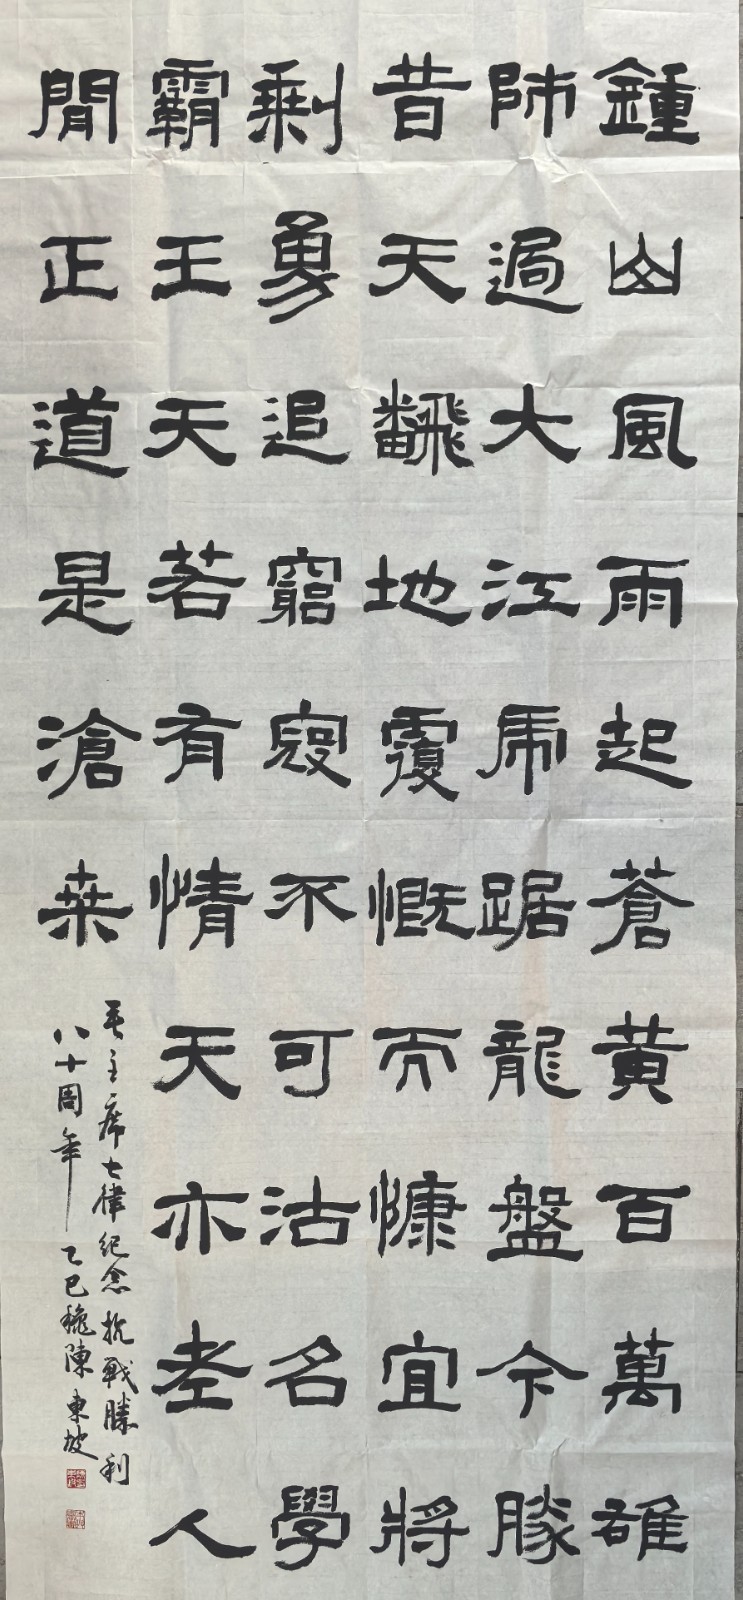 鍾山風雨起蒼黃百萬雄
師過大江虎踞龍盤今勝
昔天飜地覆慨而慷宜將
剩勇追窮寇不可沽名學
霸王天若有情天亦老人
閒正道是滄桒
毛主席七律紀念抗戰勝利
八十周年乙巳穐陳東坡